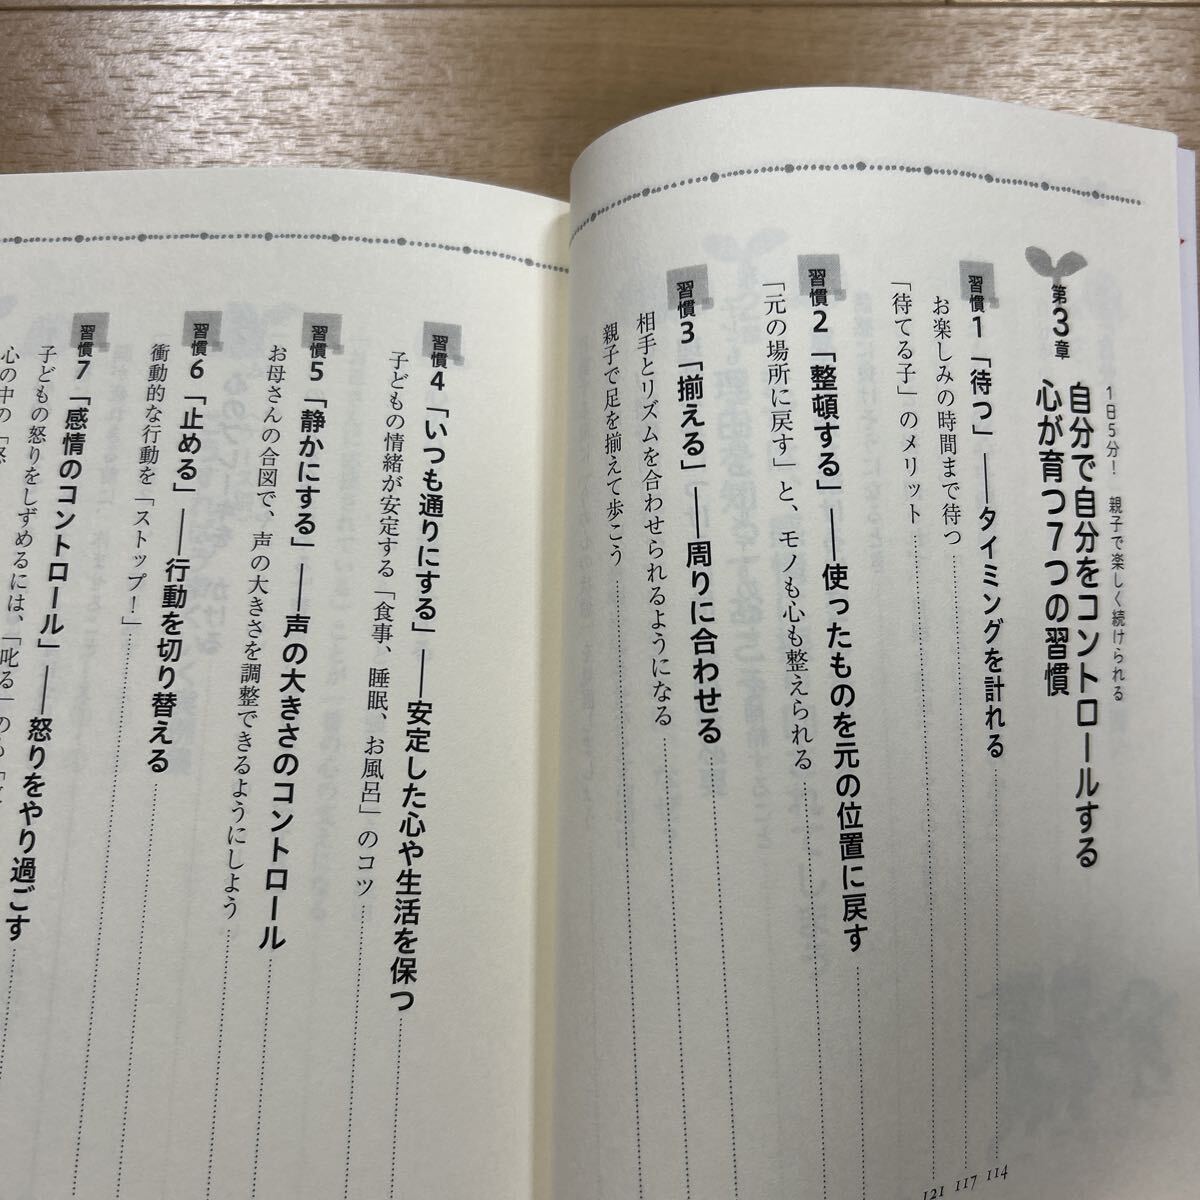 第3章
1日5分! 親子で楽しく続けられる
自分で自分をコントロールする
心が育つ7つの習慣
習慣1 「待つ」——タイミングを計れる
お楽しみの時間まで待つ
「待てる子」のメリット
習慣2 「整頓する」——使ったものを元の位置に戻す
「元の場所に戻す」と、モノも心も整えられる
習慣3 「揃える」——周りに合わせる
相手とリズムを合わせられるようになる
親子で足を揃えて歩こう
114
117
121
習慣4 「いつも通りにする」——安定した心や生活を保つ
子どもの情緒が安定する「食事、睡眠、お風呂」のコツ
習慣5 「静かにする」——声の大きさのコントロール
お母さんの合図で、声の大きさを調整できるようにしよう
習慣6 「止める」——行動を切り替える
衝動的な行動を「ストップ!」
習慣7 「感情のコントロール」——怒りをやり過ごす
子どもの怒りをしずめるには、「叱る」のも
心の中の「怒